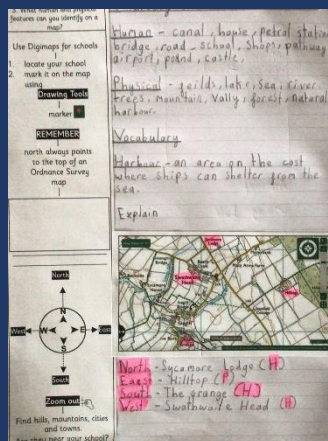 features can you identify on a
map?
Use Digimaps for schools
1. locate your school
2. mark it on the map
using
Drawing Tools
marker
REMEMBER
north always points
to the top of an
Ordnance Survey
map
North
N
West W E East
S
South
Zoom out
Find hills, mountains, cities
and towns.
Are they near your school?
Human - canal, house, petrol station
bridge, road, school, shops, pathway
airport, pound, castle.
Physical - feilds, lake, sea, river
trees, mountain, vally, forest, natural
harbour.
Vocabulary
Harbour - an area on the cost
where ships can shelter from the
sea.
Explain
North - Sycamore Lodge (H)
East - Hilltop (P)
South - The grange (H)
West - Swathwaite Head (H)